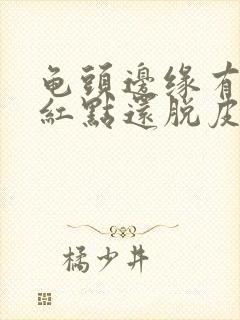 龟頭邊缘有
紅點還脱皮
橘少井